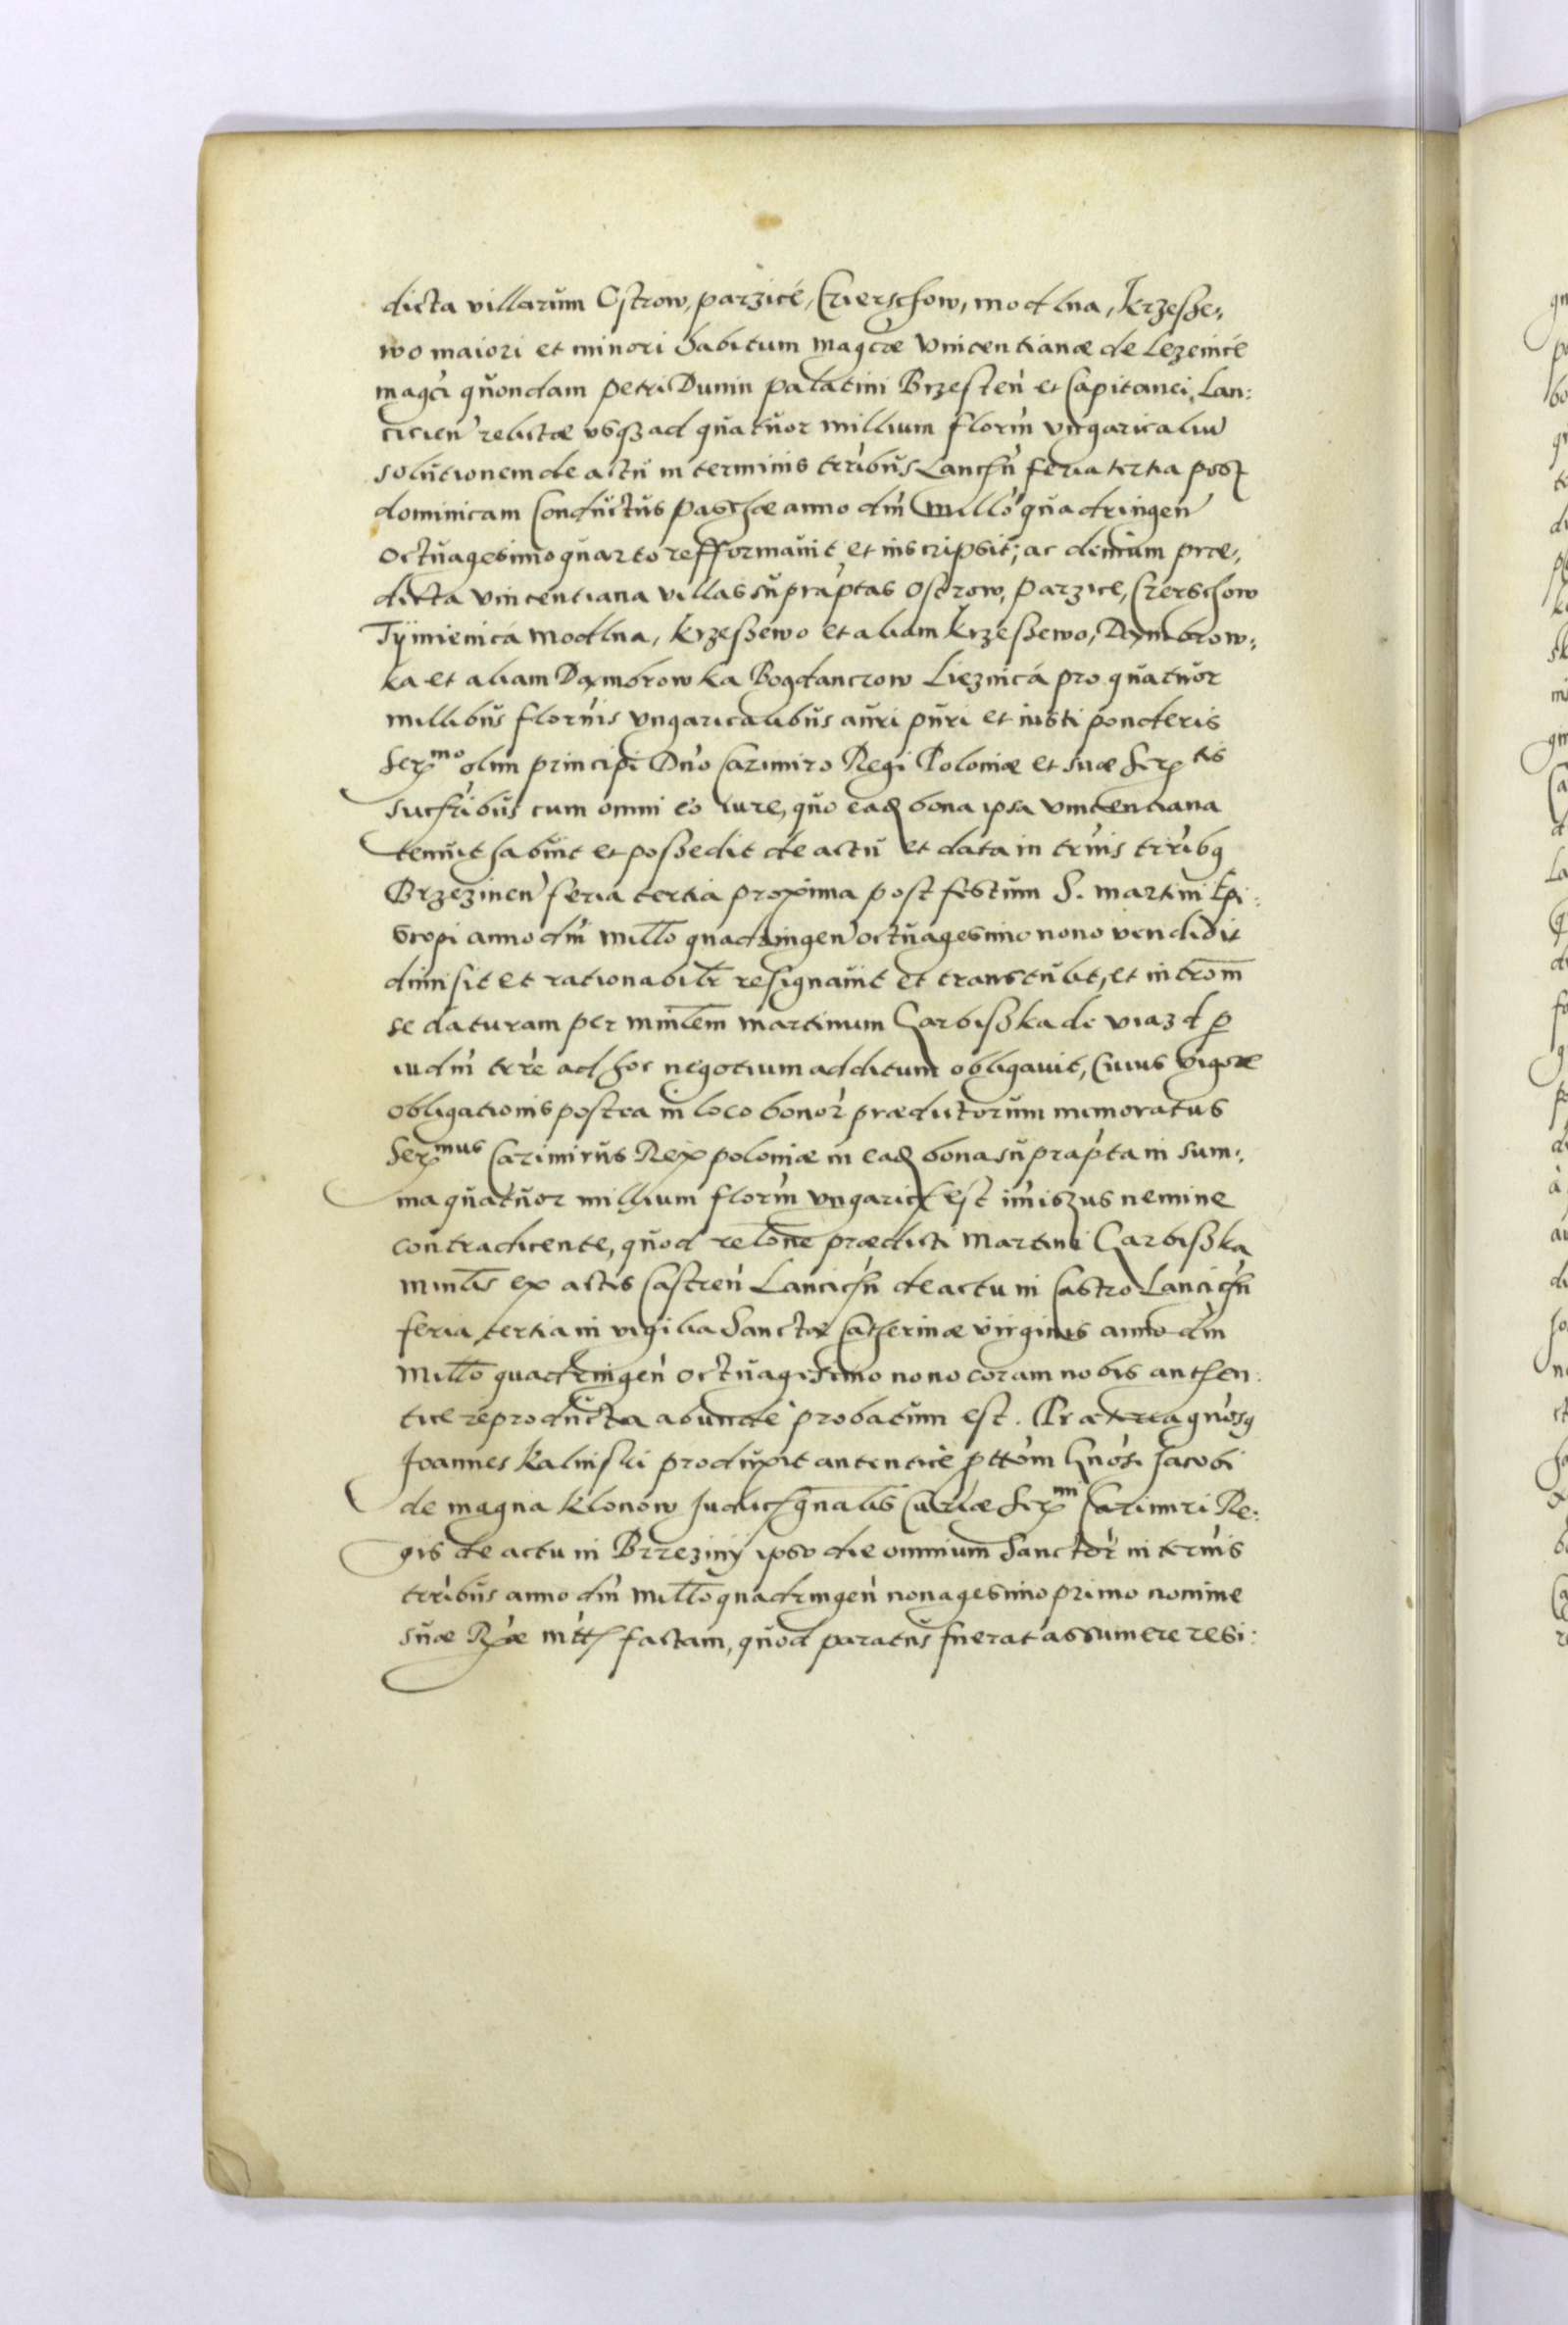 dicta villarum Ostrow, parzicé, Czierschow, modlna, Krzesße,,
wo maiori et minori habitum magcæ Vincentianæ de Lezenicé
magci quondam petri Dunin palatini Brzesten et Capitanei, Lan:
cicien relictæ vsq3 ad quatuor millium florin vngaricaliu
solutionem de actu in terminis tribus Lancn feria tertia post
dominicam Conductus paschæ anno dni Millo quadringen
octuagesimo quarto refformauit et inscripsit; ac demum præ,,
dicta Vincentiana villas supraptas Ostrow, Parzice, Czerschow
Tÿmienicá modlna, Krzeßewo et aliam Krzeßewo, Dambrow,
ka et aliam Dambrowka Bogdanczow Lieznicá pro quatuor
millibus flornis vngaricalibus auri puri et iusti ponderis
Serx^mo olim principi Dno Cazimiro Regi Poloniæ et suæ Serx^tis
succribus cum omni eo iure, quo eadq bona ipsa Vincentiana
tenuit habuit et poßedit de actu et data in trnis trribq
Brzezinen feria tertia proxima post festum S. martini Epi:
scopi anno dni millo quadringen octuagesimo nono vendidit
dimisit et rationabilr resignauit et transtulit, et introm
se daturam per minlem martinum Garbißka de viazd p
iudm trre ad hoc negotium additum obligauit, Cuius vigore
obligationis postea in loco bonor prædictorum memoratus
Serx^mus Cazimirus Rex poloniæ in eadq bona suprapta in sum:,
ma quatuor millium florin vngaric est imiszus nemine
contradicente, quod relone prædicti Martini Garbißka
minlis ex actis Castren Lancicn de actu in Castro Lancicn
feria tertia in vigilia Sanctæ Catherinæ virginis anno dni
millo quadringen octuagesimo nono coram nobis authen:
tice reproducta abunde probatum est. Præterea gnosq
Joannes Kalinski produxit autenticè pttom Gnosi Jacobi
de magna Klonow Judicis gnalis Curiæ Serx^mi Cazimiri Re:
gis de actu in Brzezinÿ ipso die omnium Sanctor in ternis
trribus anno dni millo quadringen nonagesimo primo nomine
suæ Rx̀æ mtt factam, quod paratus fuerat assumere resi: